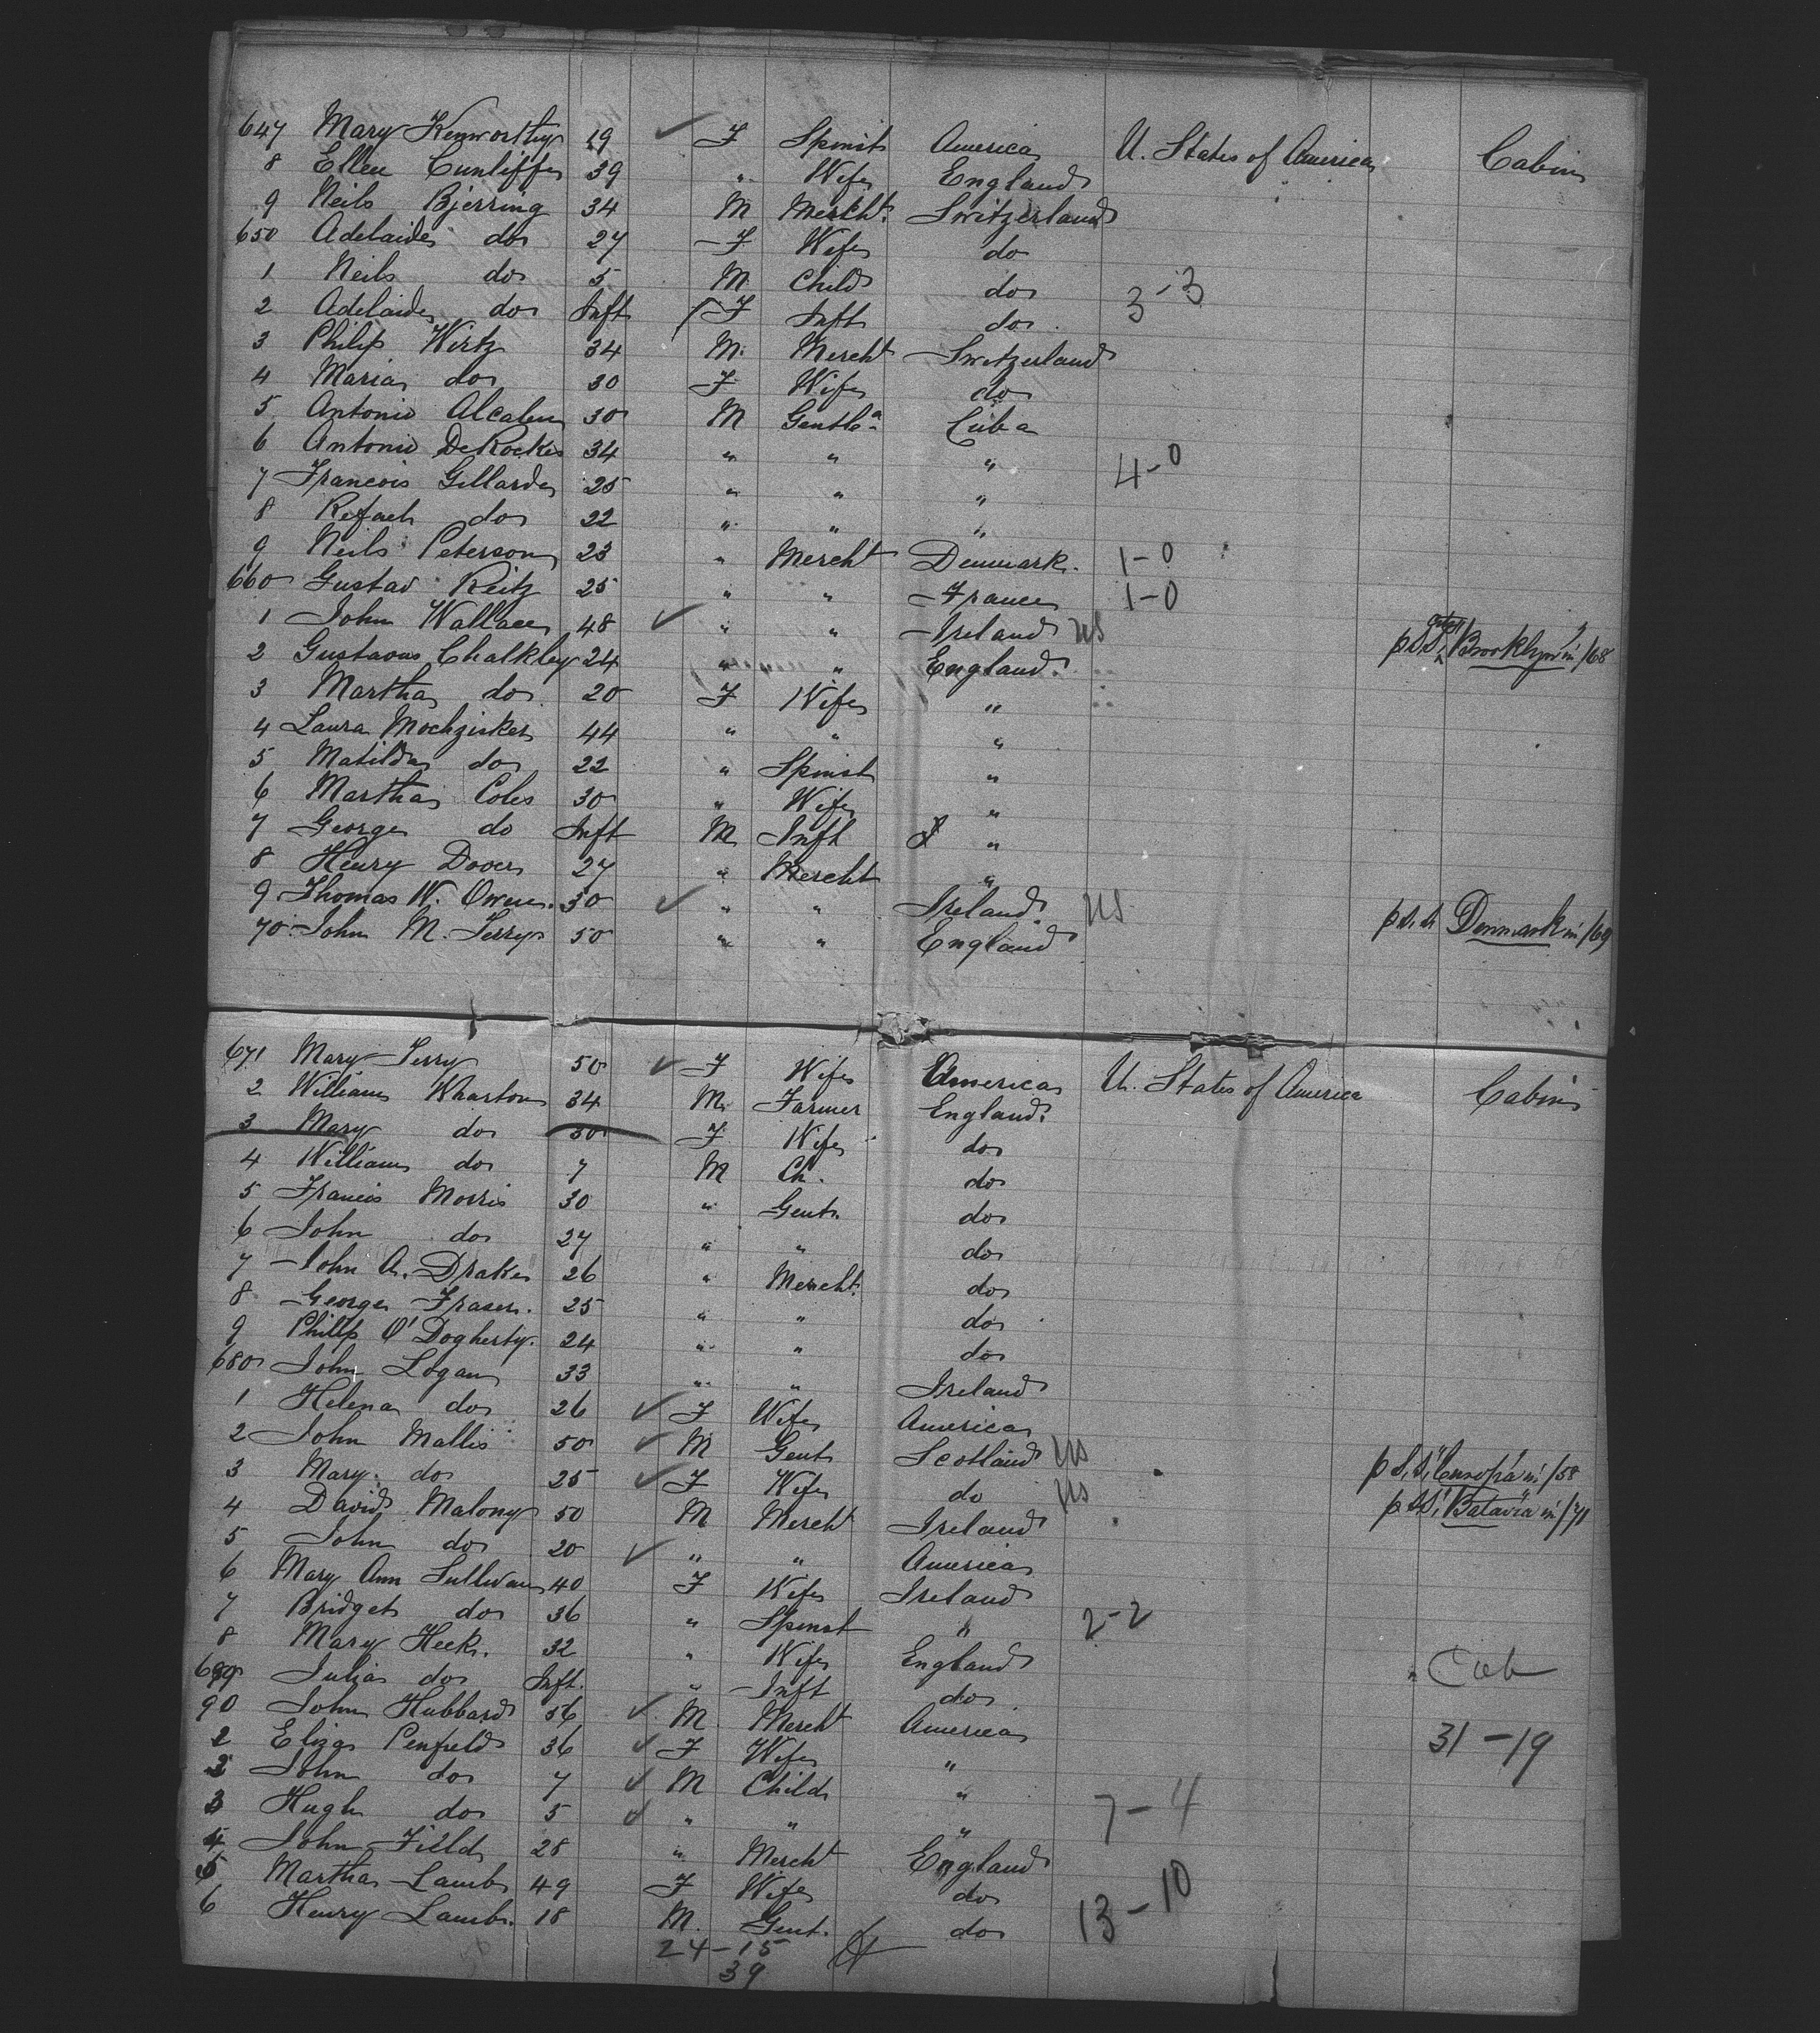 647 Mary Kenworthy 19 ✓ F Spinst America U. States of America Cabin
8 Ellen Cunliffe 39 " Wife England
9 Neils Bjerring 34 M Mercht. Switzerland
650 Adelaide do 27 F Wife do
1 Neils do 5 M Child do 3-3
2 Adelaide do Inft F Inft do
3 Philip Wirtz 34 M. Mercht Switzerland
4 Maria do 30 F Wife do
5 Antonio 30 M Gentle Cuba
6 Antonio DeRockes 34 " " " 4-0
7 Francois Gellarde 25 " " "
8 Refaeh do 22 " " "
9 Neils Peterson 23 " Mercht Denmark. 1-0
660 Gustav Reitz 25 " " France 1-0
1 John Wallace 48 ✓ " " Ireland US p SS Brooklyn in /68
2 Gustavus Chalkley 24 " " England.
3 Martha do 20 F Wife "
4 Laura Mochzisker 44 " " "
5 Matilda do 22 " Spinst "
6 Martha Coles 30 " Wife "
7 George do Inft M Inft "
8 Henry Dover 27 " Mercht "
9 Thomas W. Owen. 30 ✓ " " Ireland. US p S.S. Denmark in /69
70 John M. Terry 50 " " England
671 Mary Terry 50 ✓ F Wife America U. States of America Cabin
2 William Wharton 34 M. Farmer England.
3 Mary do 30 F Wife do
4 William do 7 M Ch. do
5 Francis Morris 30 " Gent. do
6 John do 27 " " do
7 John A. Drake 26 " Mercht. do
8 George Fraser. 25 " " do
9 Philip O'Dogherty. 24 " " do
680 John Logan 33 " " Ireland
1 Helena do 26 ✓ F Wife America
2 John Mallis 50 ✓ M Gent Scotland US p S.S. "Europa" in /58
3 Mary do 25 ✓ F Wife do US p SS. "Batavia" in /71
4 David Malony 50 M Mercht Ireland
5 John do 20 ✓ " " America
6 Mary Ann Sullivan 40 F Wife Ireland
7 Bridget do 36 " Spinst " 2-2
8 Mary Heek. 32 " Wife England
Julia do Inft. " Inft do Cab
90 John Hubbard 56 ✓ M Mercht America
2 Eliza Penfield 36 ✓ F Wife " 31-19
2 John do 7 ✓ M Child "
3 Hugh do 5 ✓ " " " 7-4
4 John Field 28 " Mercht England
5 Martha Lamb 49 F Wife do
6 Henry Lamb. 18 M. Gent. do 13-10
24-15
39